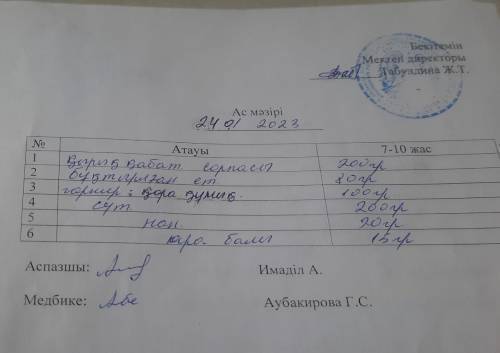 Бекітемін
Мектеп директоры
Лабуядина Ж.Т.
Ас мәзірі
24 01 2023
№ Атауы 7-10 жас
1 қырыққабат сорпасы 200гр
2 бұқтырылған ет 80гр
3 гарнир: қара құмық. 100гр
4 сүт 200гр
5 нан 20гр
6 15гр
Аспазшы: Имаділ А.
Медбике: Аубакирова Г.С.